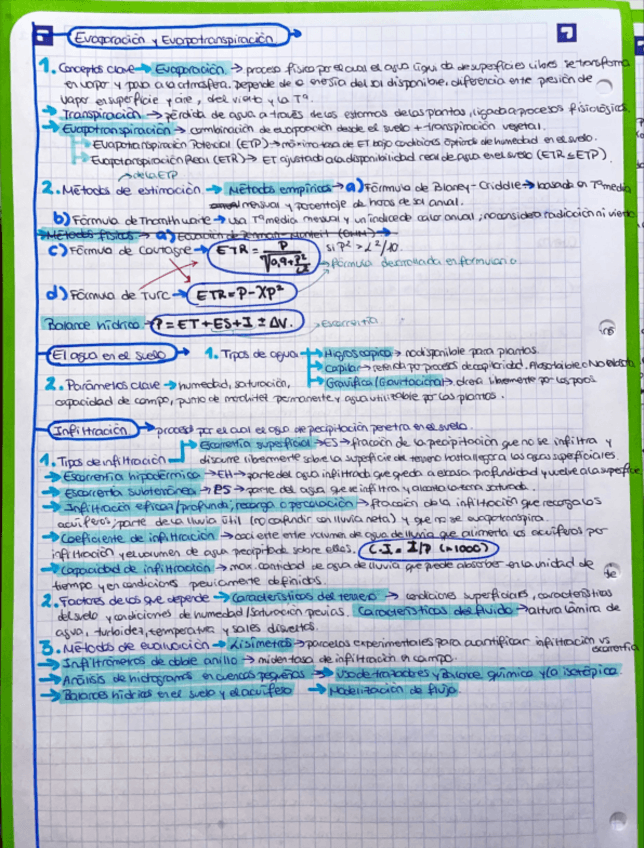 7 Evaporación y Evapotranspiración 7
1. Conceptos clave → Evaporación → proceso físico por el cual el agua líquida de superficies libres se transforma
en vapor y pasa a la atmósfera, depende de la energía del sol disponible, diferencia entre presión de
vapor en superficie y aire, del viento y la Tª.
→ Transpiración → pérdida de agua a través de los estomas de las plantas, ligada a procesos fisiológicos
→ Evapotranspiración → combinación de evaporación desde el suelo + transpiración vegetal.
→ Evapotranspiración Potencial (ETP) → máxima tasa de ET bajo condiciones óptimas de humedad en el suelo.
→ Evapotranspiración Real (ETR) → ET ajustada a la disponibilidad real de agua en el suelo (ETR ≤ ETP).
→ de la ETP
2. Métodos de estimación → Métodos empíricos → a) Fórmula de Blaney-Criddle → basada en Tª media
mensual y porcentaje de horas de sol anual.
b) Fórmula de Thornthwaite → usa Tª media mensual y un índice de calor anual, no considera radiación ni viento
Métodos físicos → a) Ecuación de Penman-Monteith
c) Fórmula de Coutagne → ETR = P / √0,9 + P²/L² si P² > L²/10.
→ fórmula desarrollada en formulario
d) Fórmula de Turc → ETR = P - XP²
Balance hídrico → P = ET + ES + I ± ΔV. → Escorrentía
El agua en el suelo → 1. Tipos de agua → Higroscópica → no disponible para plantas.
→ Capilar → retenida por procesos de capilaridad. Absorbible o No
2. Parámetros clave → humedad, saturación, → Gravífica (Gravitacional) → drena libremente por los poros
capacidad de campo, punto de marchitez permanente y agua utilizable por las plantas.
Infiltración → proceso por el cual el agua de precipitación penetra en el suelo.
→ Escorrentía superficial → ES → fracción de la precipitación que no se infiltra y
1. Tipos de infiltración discurre libremente sobre la superficie de terreno hasta llegar a las aguas superficiales.
→ Escorrentía hipodérmica → EH → parte del agua infiltrada que queda a escasa profundidad y vuelve a la superficie
→ Escorrentía subterránea → ES → parte del agua que se infiltra y alcanza la zona saturada.
→ Infiltración eficaz/profunda, recarga o percolación → fracción de la infiltración que recarga los
acuíferos, parte de la lluvia útil (no confundir con lluvia neta) y que no se evapotranspira.
→ Coeficiente de infiltración → cociente entre volumen de agua de lluvia que alimenta los acuíferos por
infiltración y el volumen de agua precipitada sobre ellos. C.I. = I/P (×1000)
→ Capacidad de infiltración → max. cantidad de agua de lluvia que puede absorber en la unidad de
tiempo y en condiciones previamente definidas.
2. Factores de los que depende → Características del terreno → condiciones superficiales, características
del suelo y condiciones de humedad/saturación previas. Características del fluido → altura lámina de
agua, turbidez, temperatura y sales disueltas.
3. Métodos de evaluación → Lisímetros → parcelas experimentales para cuantificar infiltración vs escorrentía
→ Infiltrómetros de doble anillo → miden tasa de infiltración en campo.
→ Análisis de hidrogramas en cuencas pequeñas → Uso de trazadores y balance químico y/o isotópico.
→ Balances hídricos en el suelo y el acuífero → Modelización de flujo.